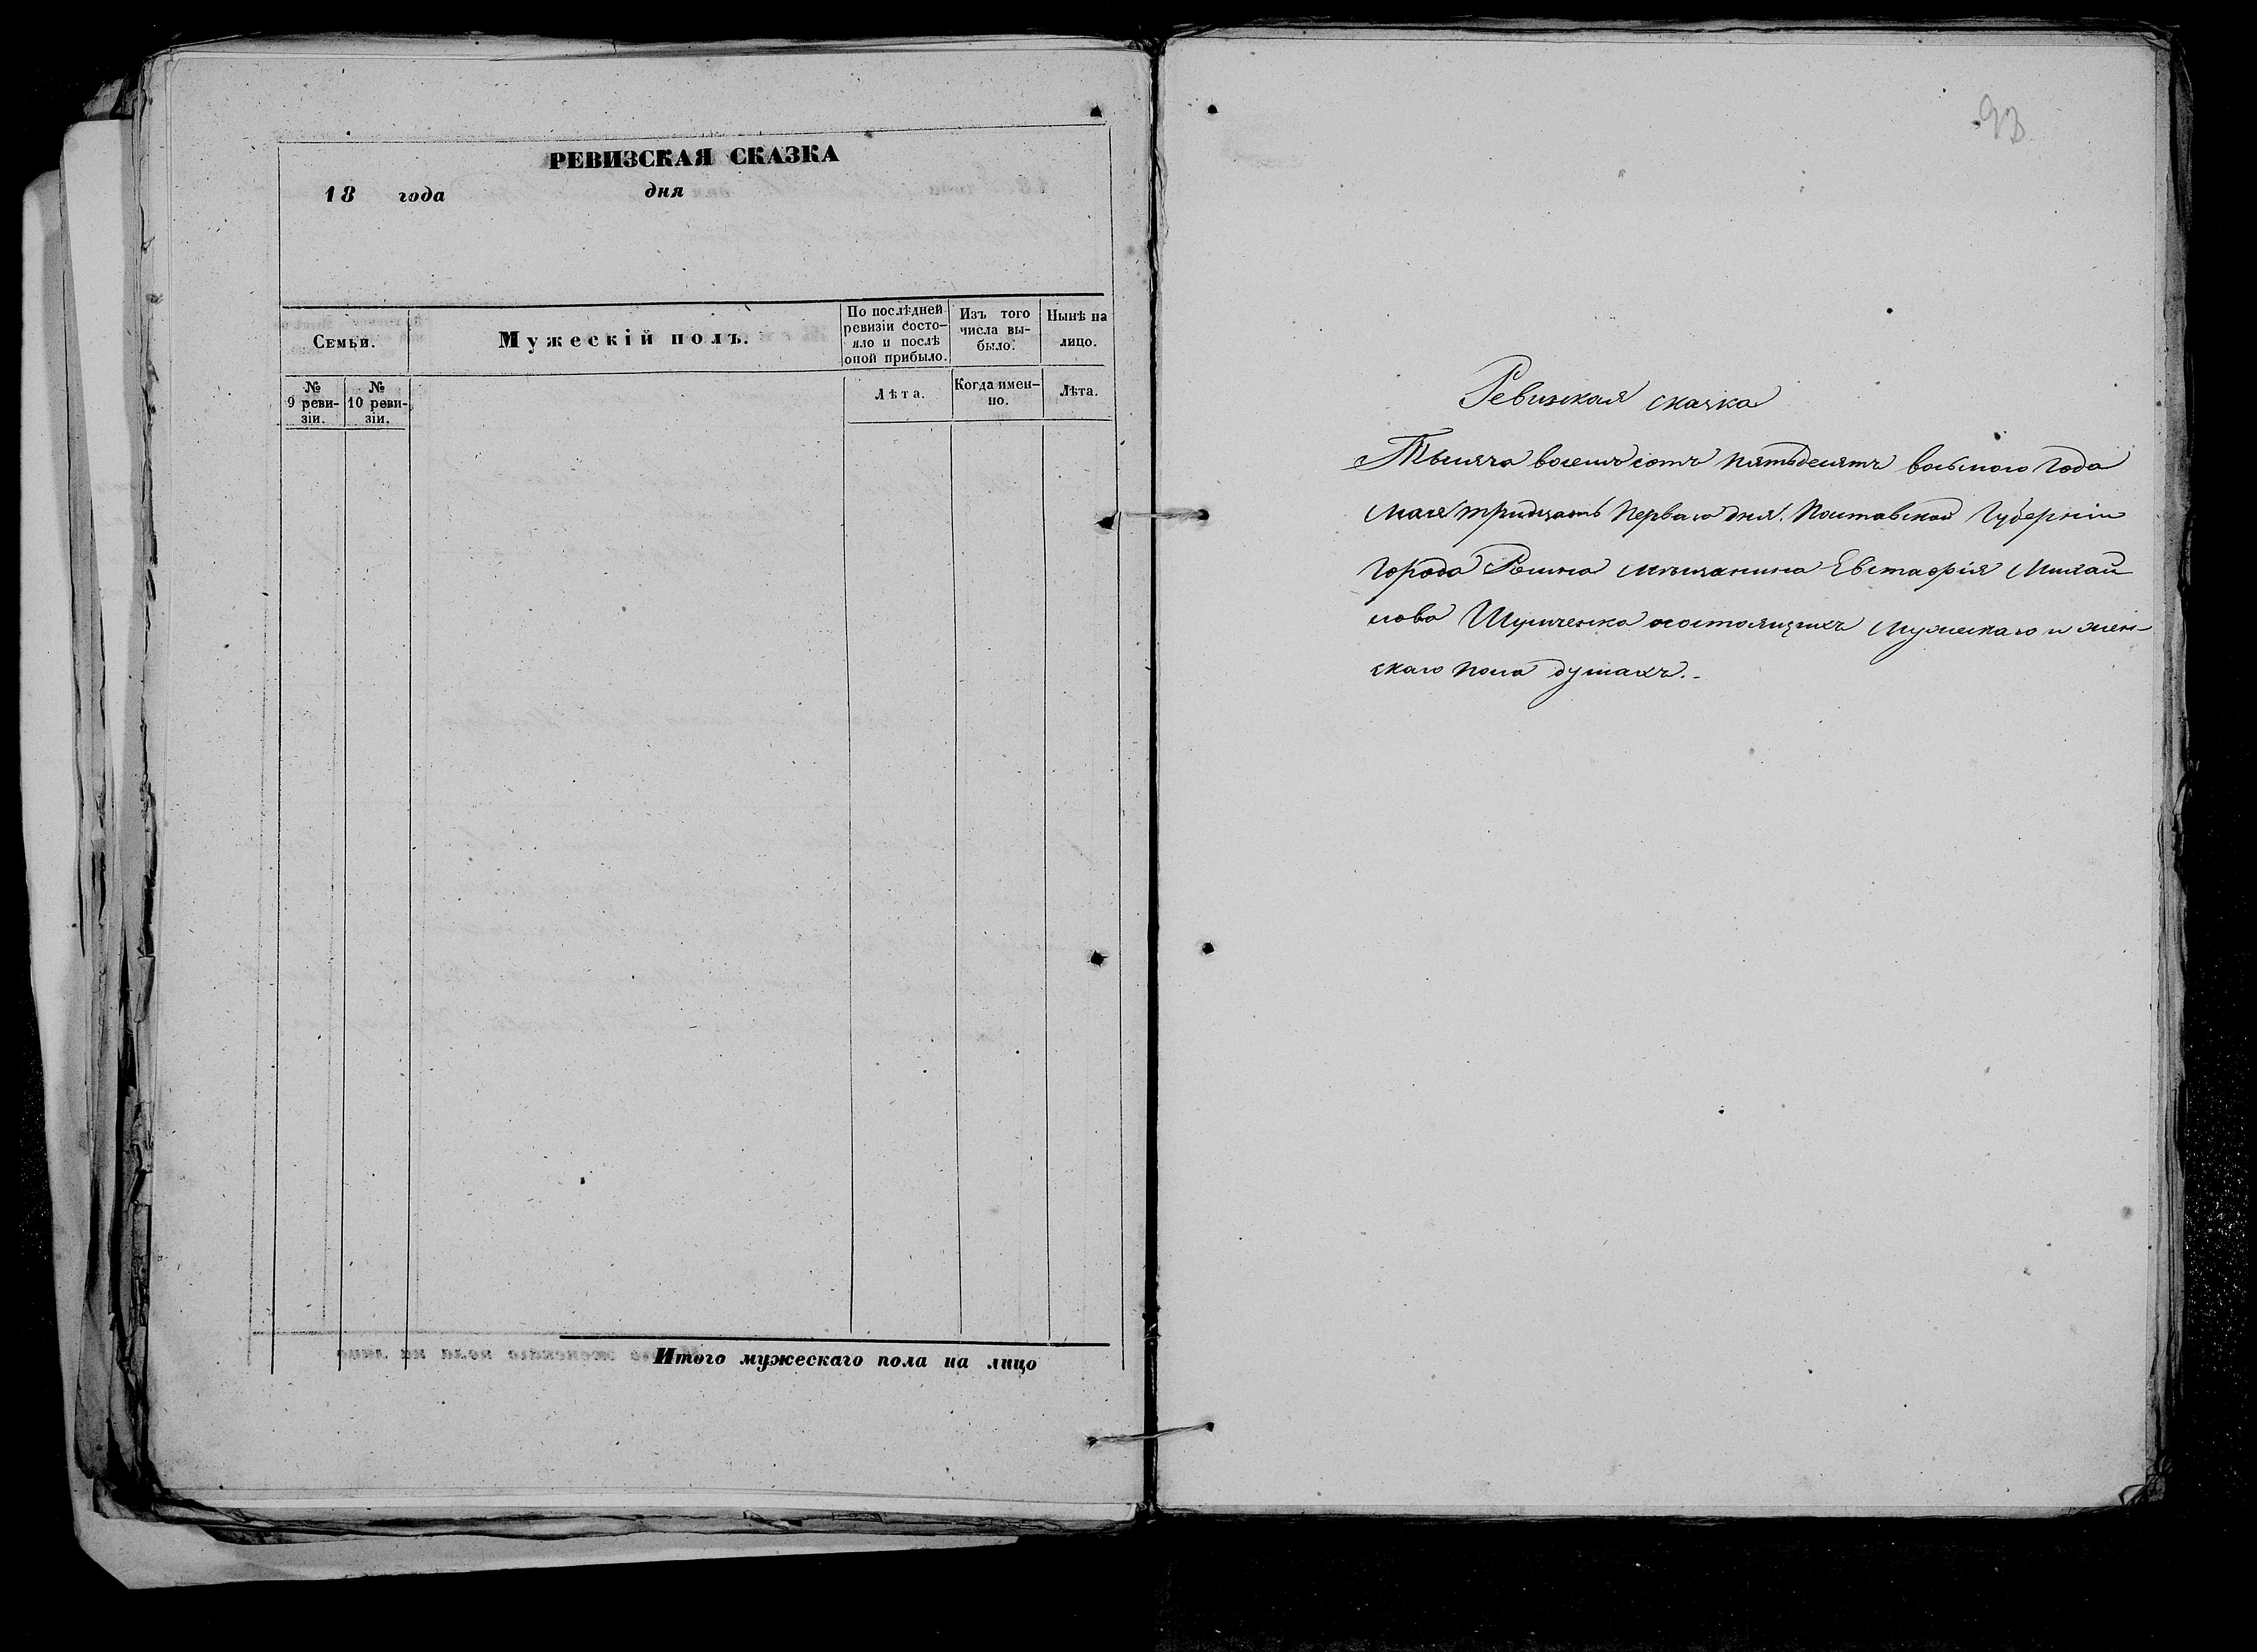 РЕВИЗСКАЯ СКАЗКА
18 года дня
Семьи.
Мужескій полъ.
По послѣдней ревизіи состо-
яло и послѣ
оной прибыло.
Изъ того
числа вы-
было.
Нынѣ на
лицо.
№
9 реви-
зіи.
№
10 реви-
зіи.
Лѣта.
Когда имен-
но.
Лѣта.
Итого мужескаго пола на лицо
93
Ревизская сказка
Тысяча восемъсотъ пятьдесятъ восьмого года
мая тридцать перваго дня. Полтавской Губерніи
города Ромна мѣщанина Евстафія Михай
лова состоящихъ мужескаго и жен-
скаго пола душахъ.-